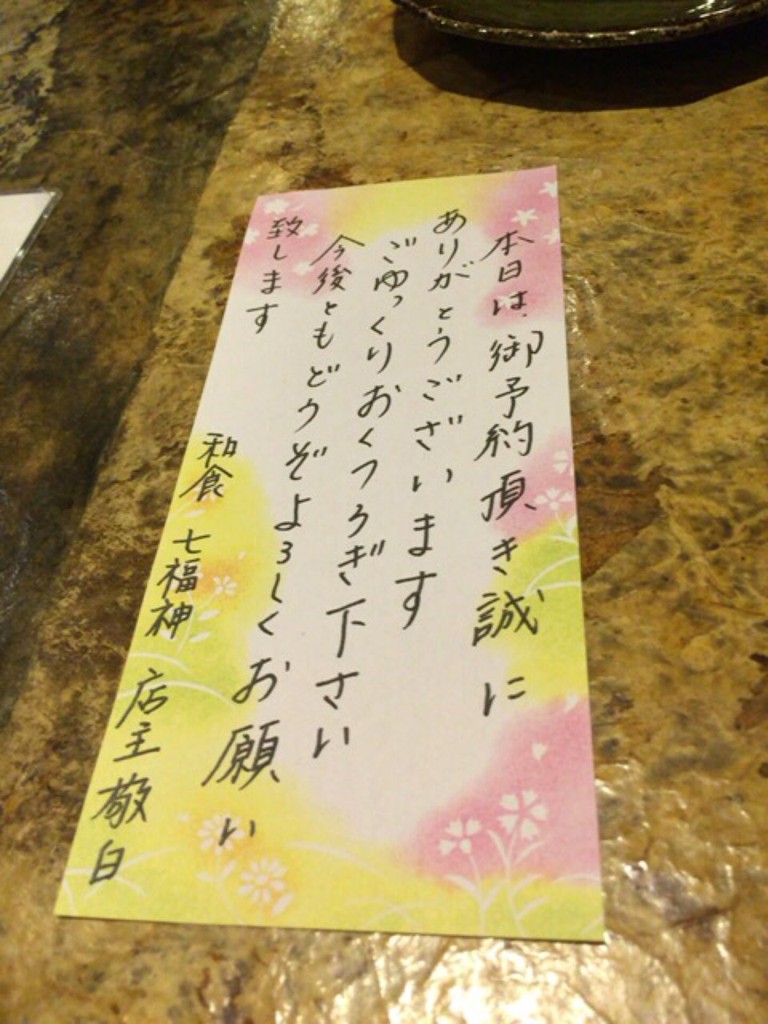 本日は、御予約頂き誠に
ありがとうございます
ごゆっくりおくつろぎ下さい
今後ともどうぞよろしくお願い
致します
和食 七福神 店主 敬白